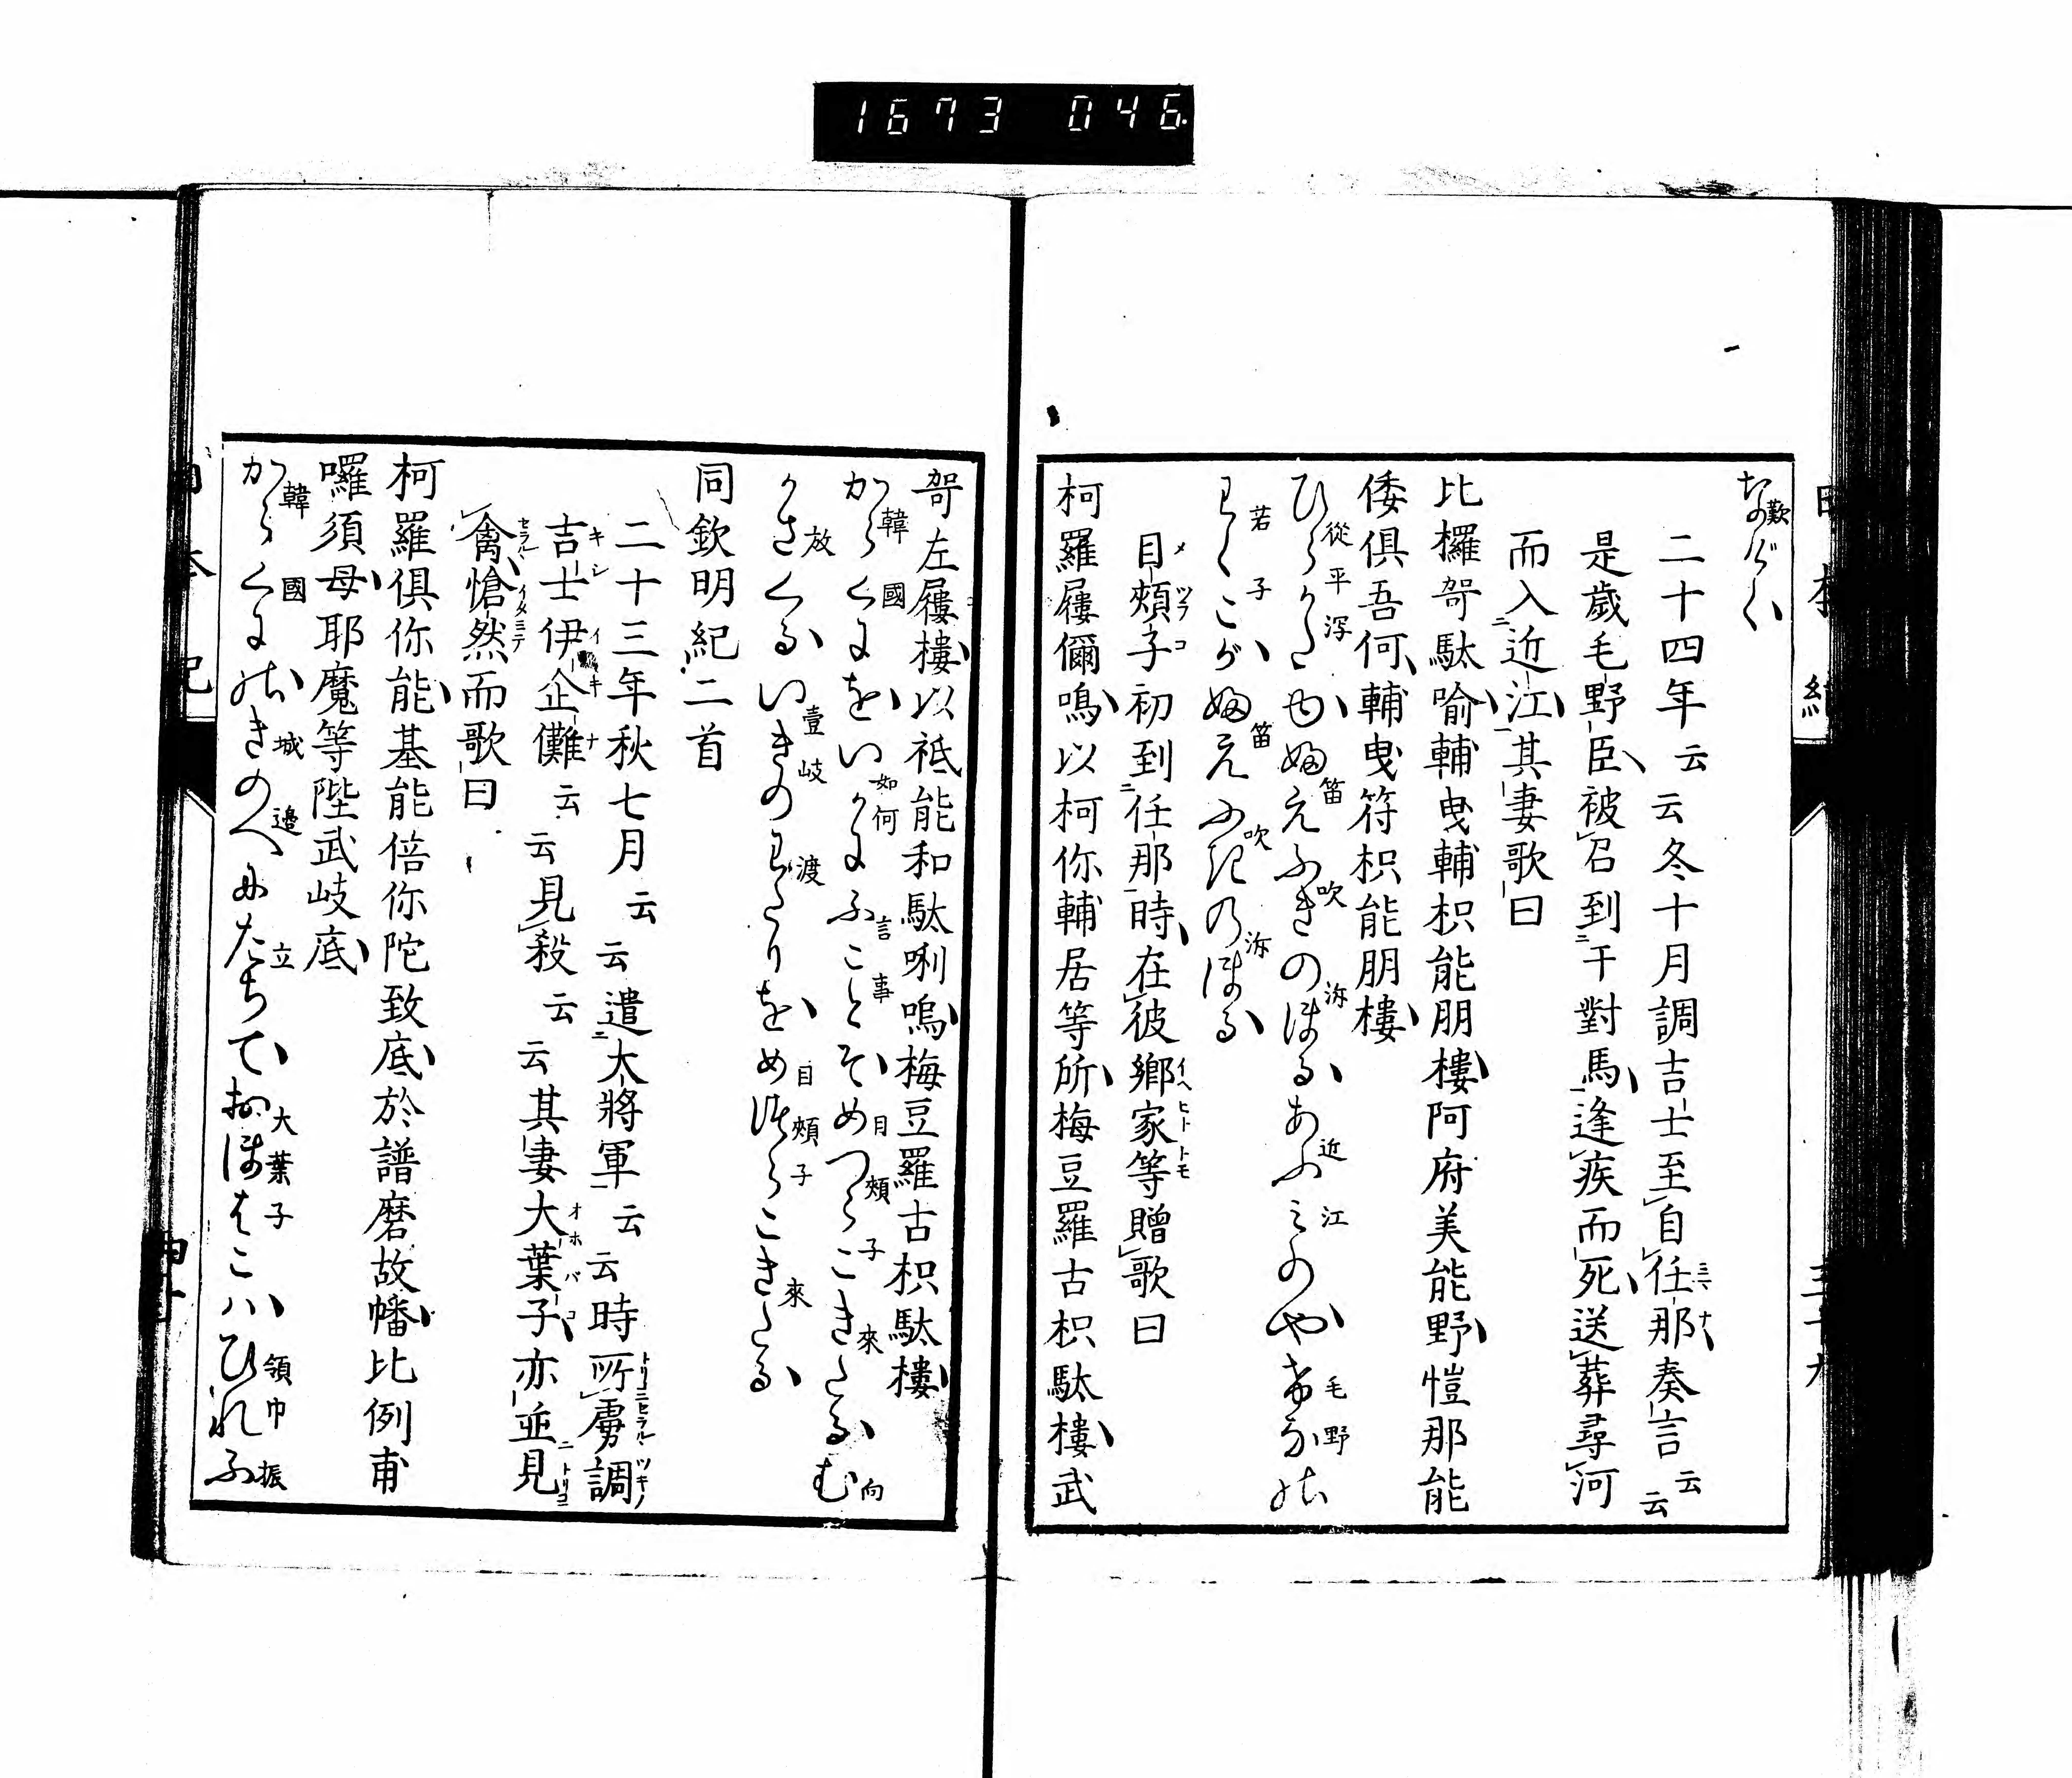 1673 046
なげく
二十四年云云冬十月調吉士至自任那奏言云云
是歲毛野臣被召到于對馬逢疾而死送葬尋河
而入近江其妻歌曰
比攞哿駄喻輔曳輔枳能朋樓阿府美能野愷那能
倭俱吾何輔曳符枳能朋樓
ひらかたゆ笛ふきのほるあふみのやけなの
わくこが笛ふきのほる
目頰子初到任那時在彼鄉家等贈歌曰
柯羅屨儞鳴以柯你輔居等所梅豆羅古枳駄樓武
哿左屨樓以祗能和駄唎嗚梅豆羅古枳駄樓
からくにをいかにふことそめつらこきたるむ
かさくるいきのわたりをめづらこきたる
同欽明紀二首
二十三年秋七月云云遣大將軍云云時所虜調
吉士伊企儺云云見殺云云其妻大葉子亦並見
禽愴然而歌曰
柯羅俱你能基能倍你陀致底於譜磨故幡比例甫
囉須母耶魔等陛武岐底
からくにのきのへにたちておほはこハひれふ